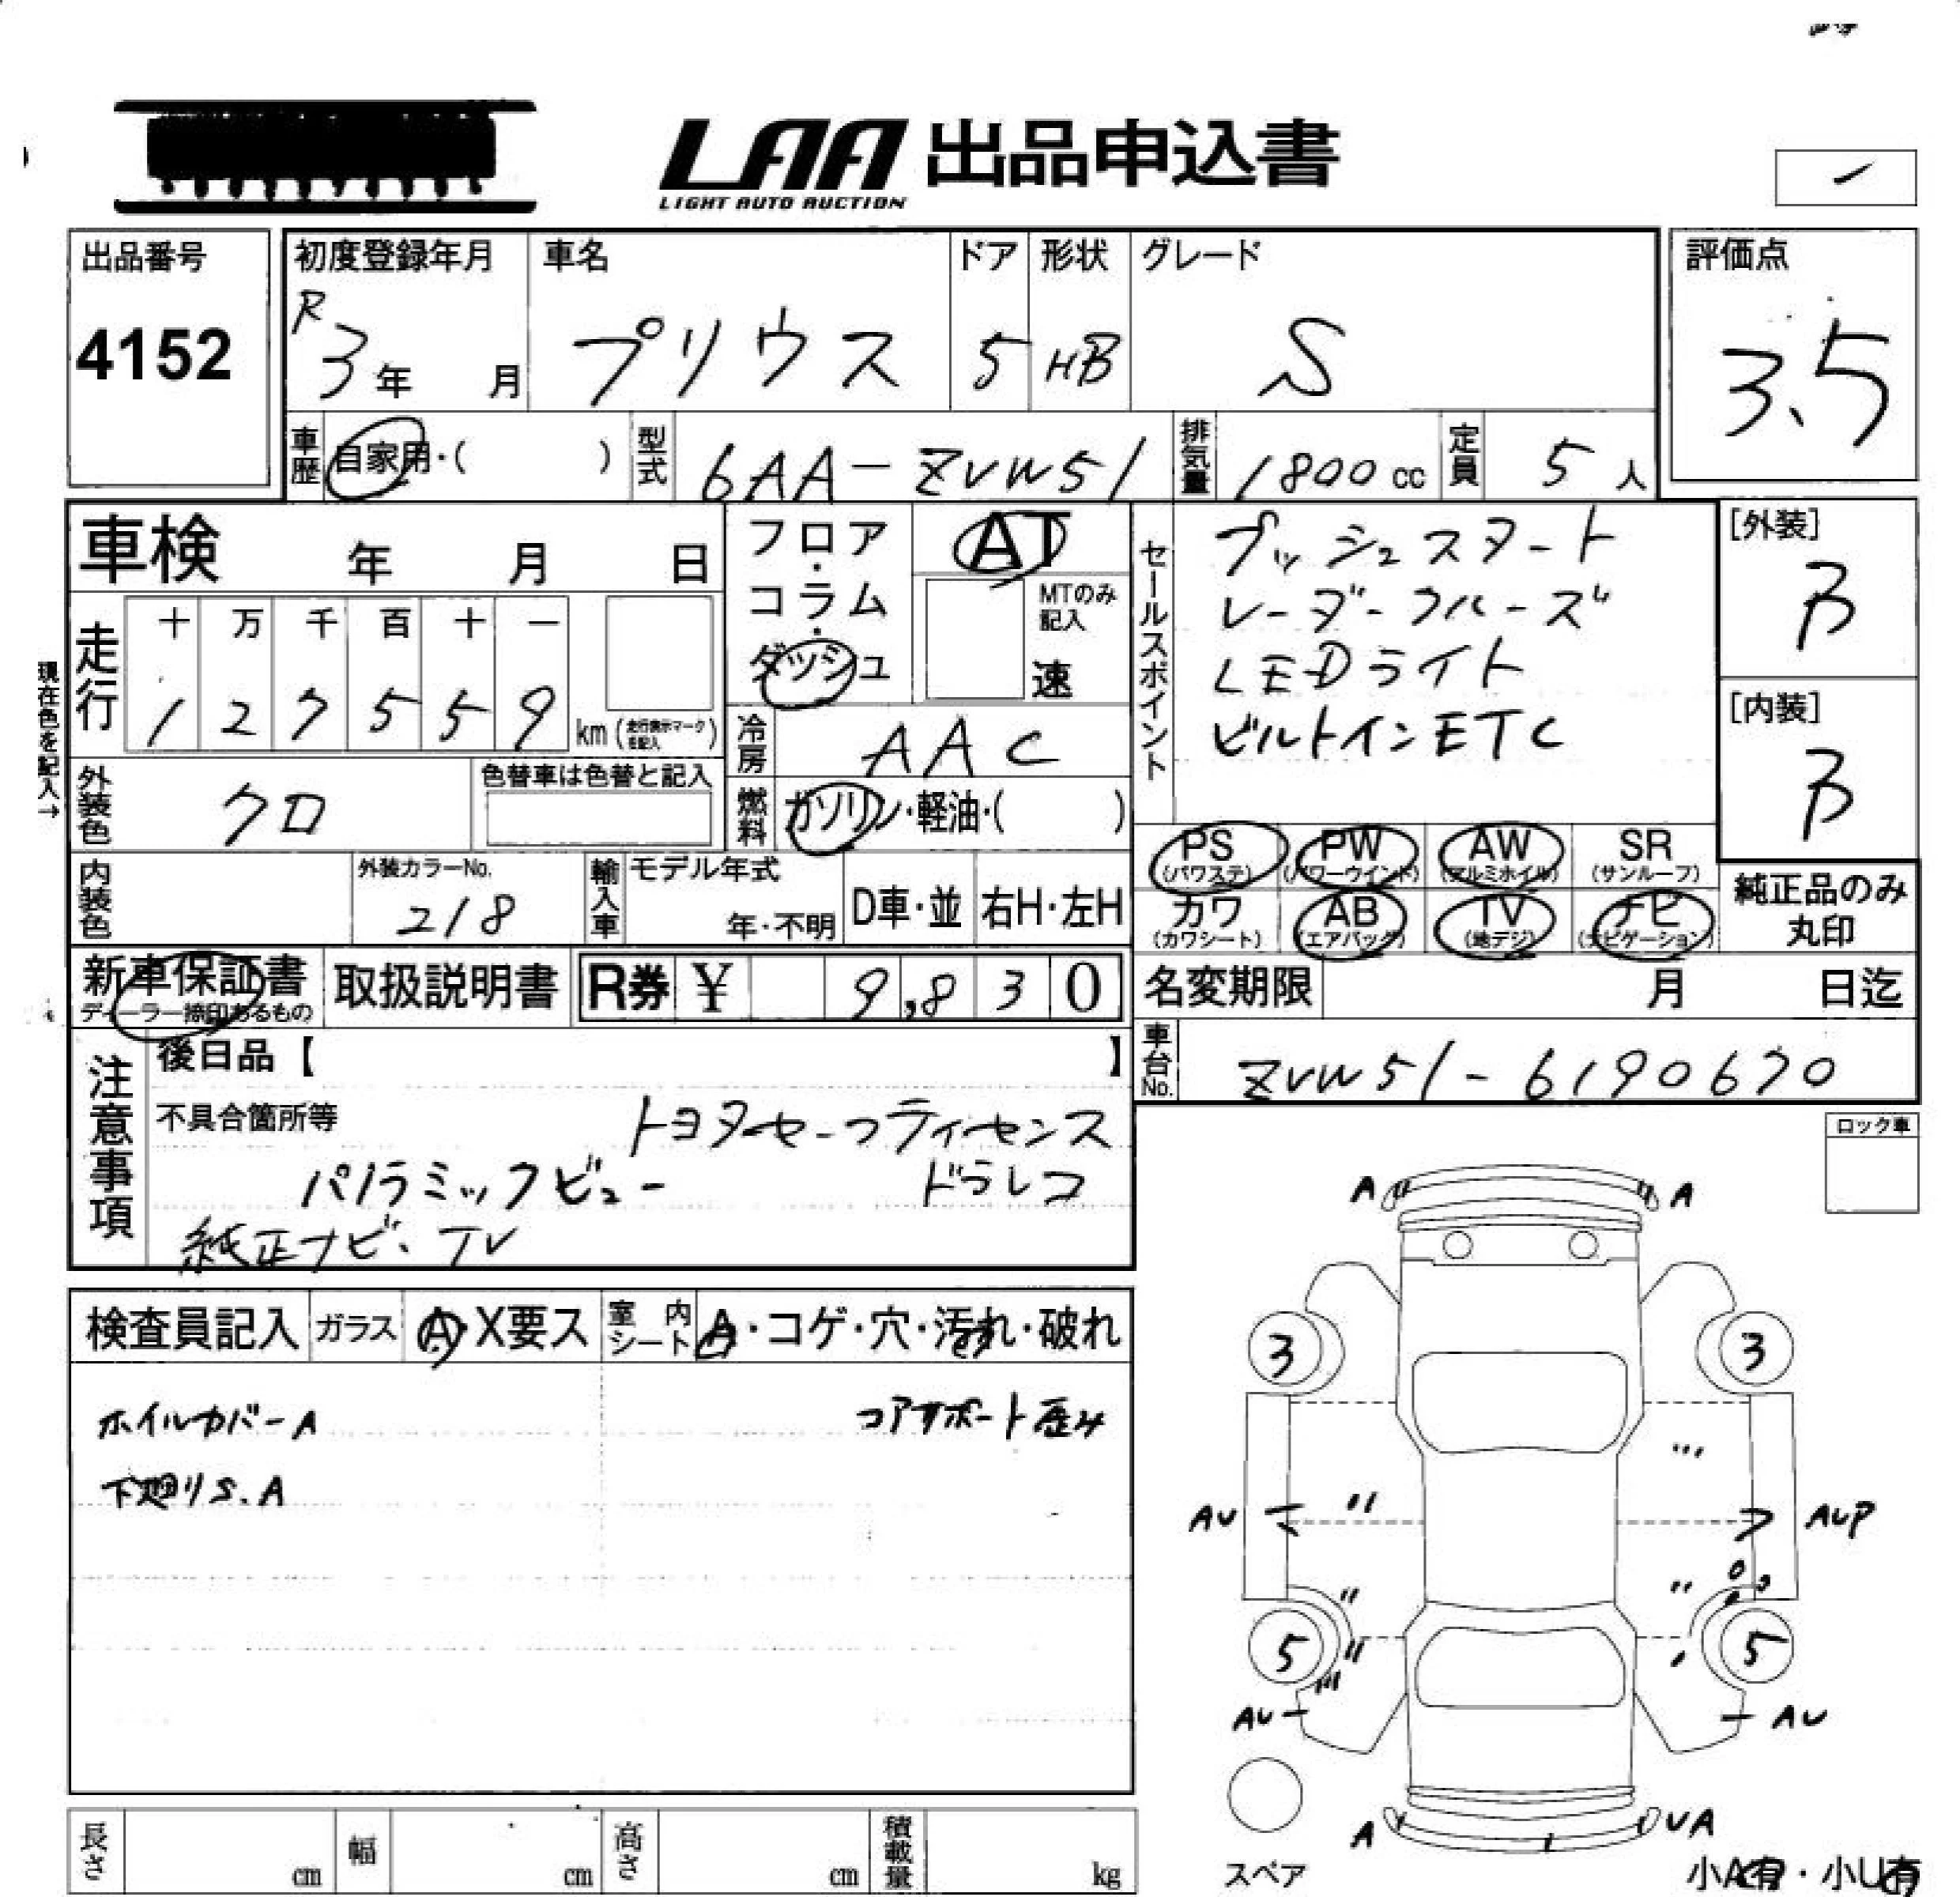 LAA 出品申込書
LIGHT AUTO AUCTION
出品番号
4152
初度登録年月
R3年 月
車名
プリウス
ドア
5
形状
HB
グレード
S
評価点
3.5
車歴 自家用・( )
型式 6AA-ZVW51
排気量 1800cc
定員 5人
車検 年 月 日
走行
十 万 千 百 十 一
1 2 7 5 5 9
km (走行表示マークを記入)
現在色を記入→
外装色 クロ
色替車は色替と記入
内装色
外装カラーNo.
218
輸入車
モデル年式
年・不明
D車・並
右H・左H
フロア・コラム・ダッシュ
AT
MTのみ記入
速
冷房 AAC
燃料 ガソリン・軽油・( )
セールスポイント
プッシュスタート
レーダークルーズ
LEDライト
ビルトインETC
[外装]
B
[内装]
B
PS (パワステ)
PW (パワーウインド)
AW (アルミホイル)
SR (サンルーフ)
カワ (カワシート)
AB (エアバッグ)
TV (地デジ)
ナビ (ナビゲーション)
純正品のみ丸印
新車保証書
ディーラー捺印あるもの
取扱説明書
R券 ¥ 9,830
名変期限 月 日迄
車台No. ZVW51-6190670
注意事項
後日品【 】
不具合箇所等
トヨタセーフティセンス
パノラミックビュー ドラレコ
純正ナビ・TV
ロック車
検査員記入
ガラス A・X要ス
室内シート A・コゲ・穴・汚れ・破れ
ホイルカバーA
コアサポート歪み
下廻りS.A
A A
3 3
AU AUP
5 5
AU AU
A UA
スペア
小A有・小U有
長さ cm
幅 cm
高さ cm
積載量 kg